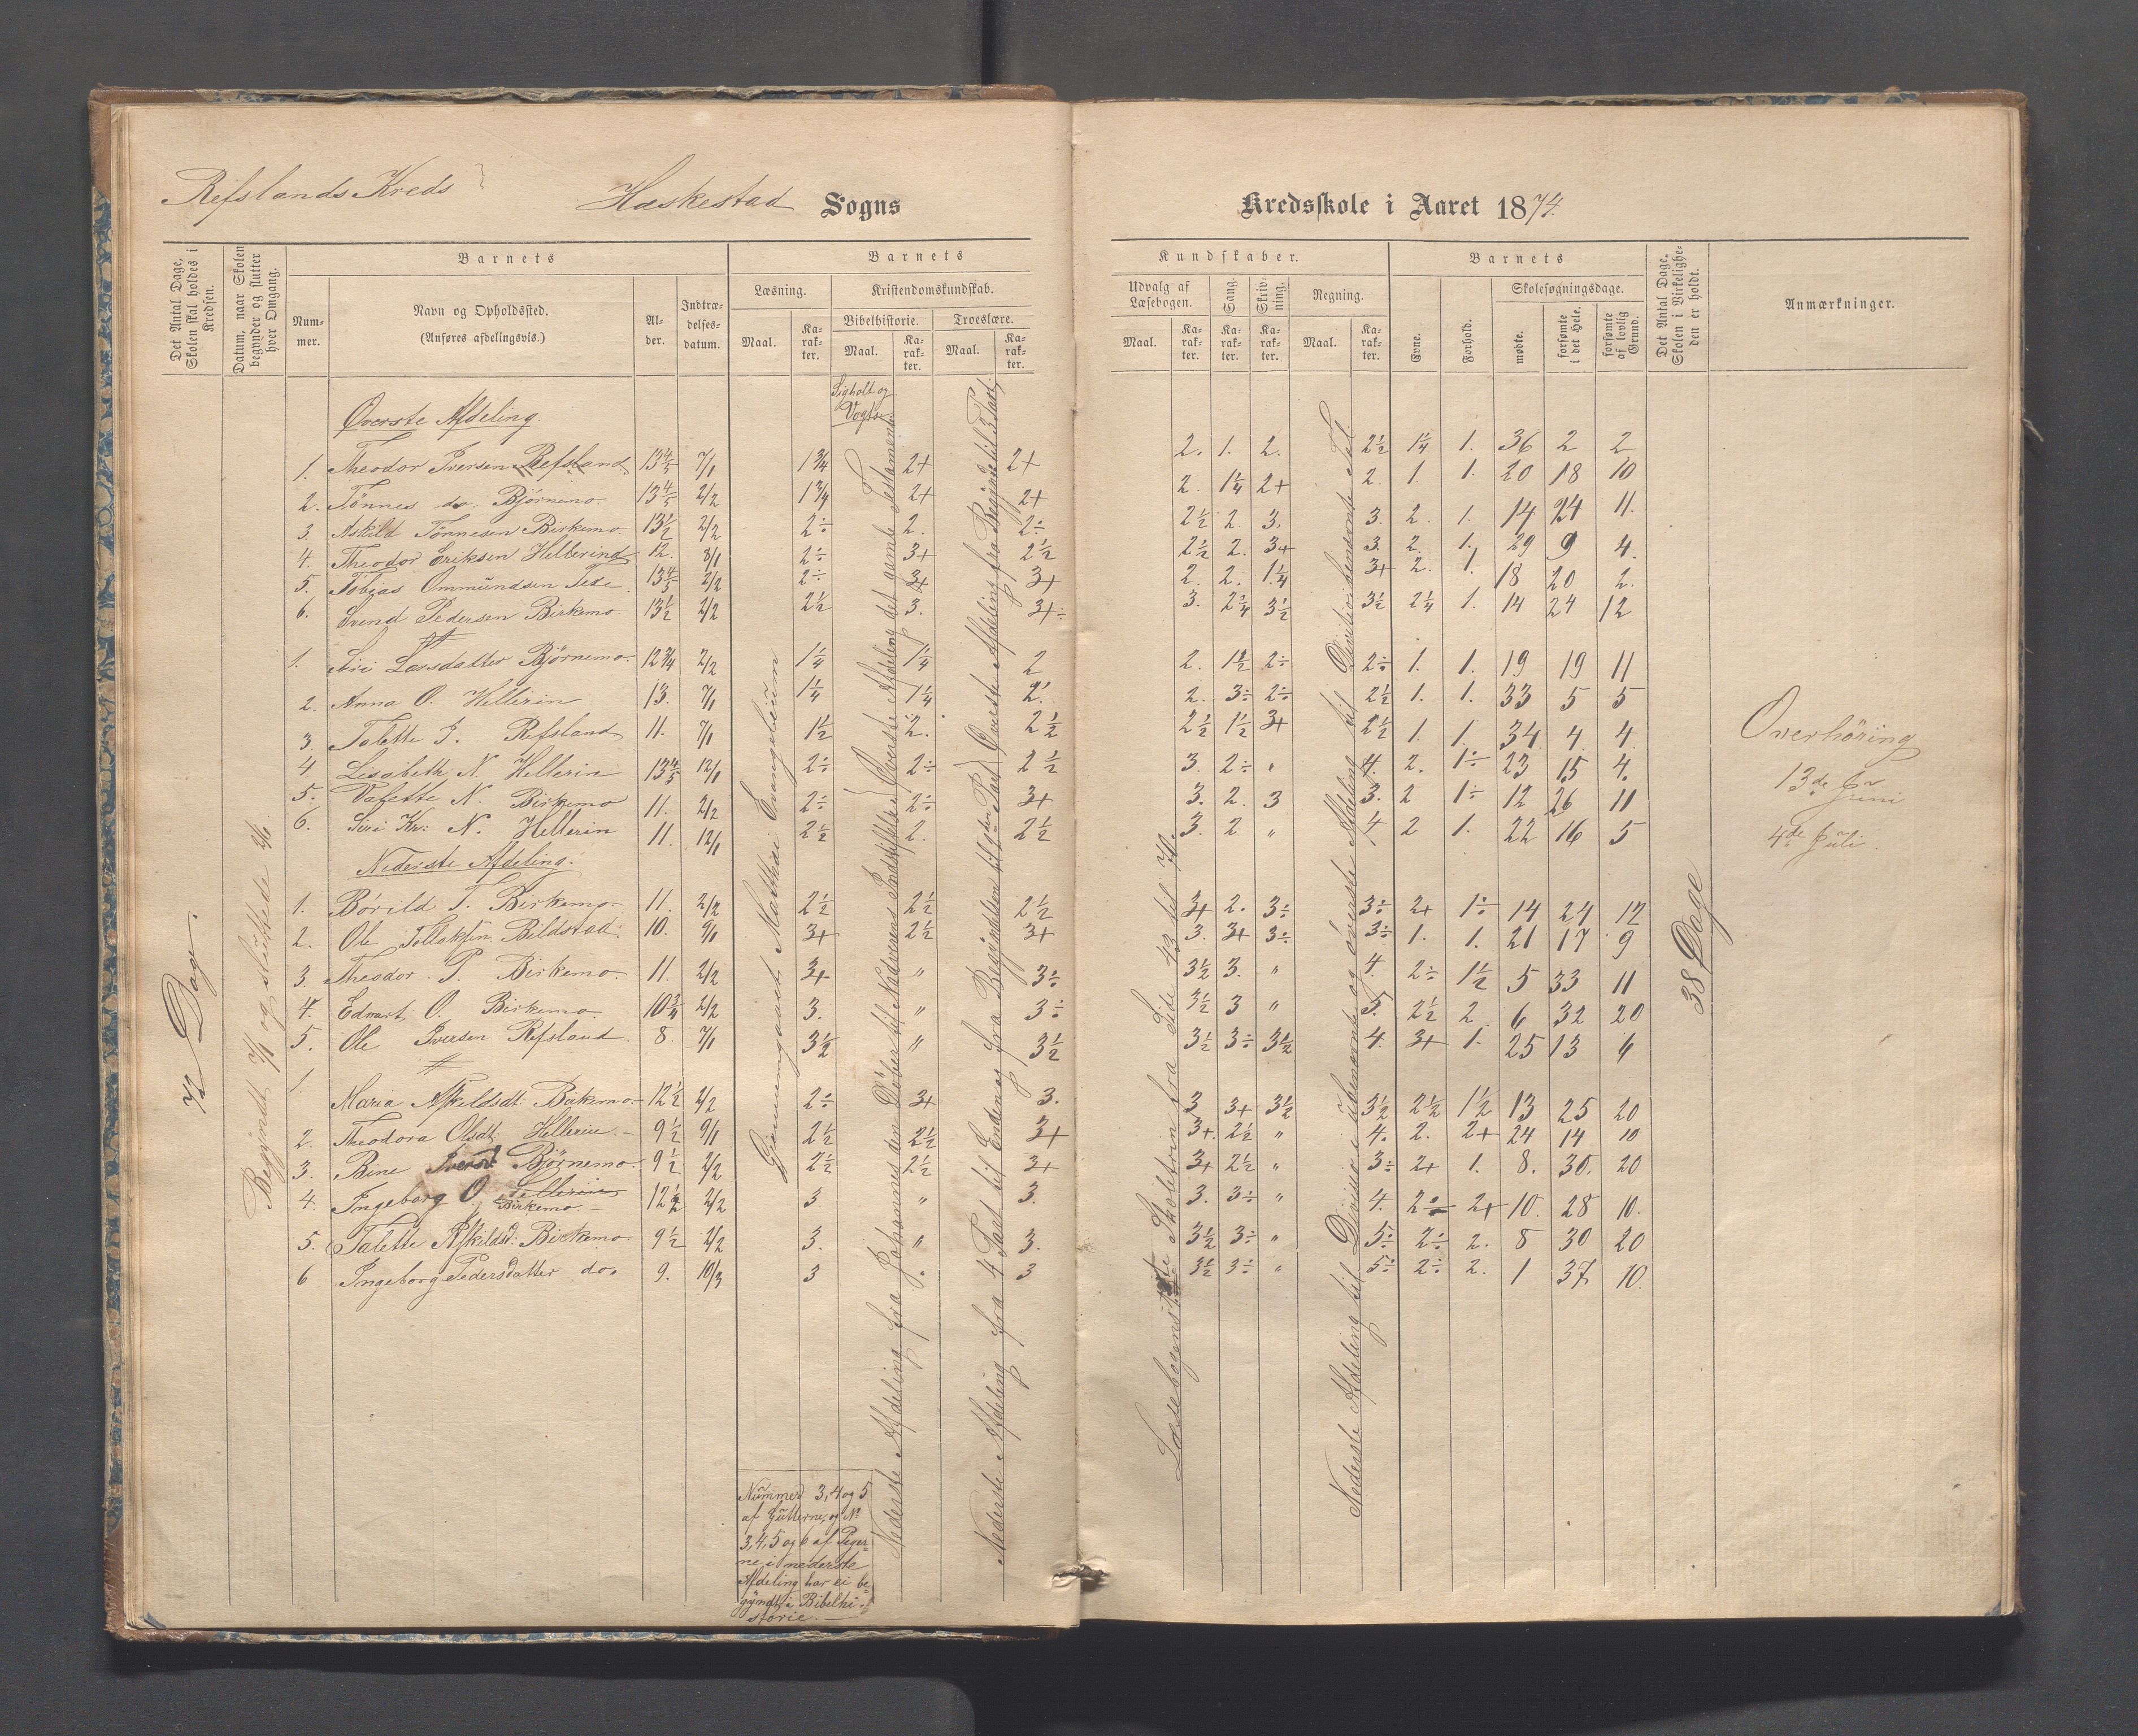 Refslands Kreds
Heskestad Sogns
Kredsskole i Aaret 1874.
Det Antal Dage, Skolen skal holdes i Kredsen.
Datum, naar Skolen begynder og slutter hver Omgang.
Barnets
Nummer.
Navn og Opholdssted.
(Anføres afdelingsvis.)
Alder.
Indtrædelsesdatum.
Barnets
Læsning.
Maal.
Karakter.
Kristendomskundskab.
Bibelhistorie.
Maal.
Karakter.
Troeslære.
Maal.
Karakter.
Kundskaber.
Udvalg af Læsebogen.
Maal.
Karakter.
Sang.
Karakter.
Skrivning.
Karakter.
Regning.
Maal.
Karakter.
Barnets
Evne.
Forhold.
Skolesøgningsdage.
mødte.
forsømte i det Hele.
forsømte af lovlig Grund.
Det Antal Dage, Skolen i Virkeligheden er holdt.
Anmærkninger.
Sigholt og
Vogts
Øverste Afdeling.
1. Theodor Iversen Refsland 13 4/5 7/1 1 3/4 2+ 2+ 2. 1. 2. 2 1/2 1 1/4 1. 36 2 2
2. Tønnes do. Bjørnemo 13 4/5 2/2 1 3/4 2+ 2+ 2. 1 1/4 2+ 2. 1. 1. 20 18 10
3. Askild Tønnesen Birkemo 13 1/2 2/2 2÷ 2. 2÷ 2 1/2 2. 3. 3. 2. 1. 14 24 11.
4. Theodor Eriksen Hellerind 12. 8/1 2÷ 3+ 2 1/2 2 1/2 2. 3+ 3. 2. 1. 29 9 4.
5. Tobias Ommundsen Tese 13 4/5 2/2 2÷ 3+ 3+ 2. 2. 1 1/4 3+ 2. 1. 18 20 2.
6. Svend Pedersen Birkemo 13 1/2 2/2 2 1/2 3. 3+÷ 3. 2 1/4 3 1/2 3 1/2 2 1/4 1. 14 24 12
1. Siri Lassdatter Bjørnemo 12 3/4 2/2 1 1/4 1 1/4 2 2. 1 1/2 2÷ 2÷ 1. 1. 19 19 11
2. Anna O. Hellerin 13. 7/1 1 1/4 1 1/4 2. 2. 3÷ 2÷ 2 1/2 1. 1. 33 5 5
3. Talette I. Refsland 11. 7/1 1 1/2 2. 2 1/2 2 1/2 1 1/2 3+ 2 1/2 1. 1. 34 4. 4.
4. Lesabeth N. Hellerin 13 4/5 12/1 2÷ 2÷ 2 1/2 3. 2÷ " 4. 2. 1÷ 23 15 4.
5. Valette N. Birkemo 11. 2/2 2÷ 2÷ 3+ 3. 2. 3 3. 2 1÷ 12 26 11
6. Siri Kr: N. Hellerin 11. 12/1 2 1/2 2. 2 1/2 3. 2 " 4 2 1. 22 16 5
Nederste Afdeling.
1. Børild T. Birkemo 11. 2/2 2 1/2 2 1/2 2 1/2 3+ 2. 3÷ 3÷ 2+ 1÷ 14 24 12
2. Ole Tollaksen Bildstad 10. 9/1 3+ 2 1/2 3+ 3. 3+ 3÷ 3÷ 1. 1. 21 17 9
3. Theodor P. Birkemo 11. 2/2 3+ " 3÷ 3 1/2 3. " 4. 2÷ 1 1/2 5 33 11
4. Edvart O. Birkemo 10 3/4 2/2 3. " 3÷ 3 1/2 3 " 5. 2 1/2 2 6 32 20
5. Ole Iversen Refsland 8. 7/1 3 1/2 " 3 1/2 3 1/2 3÷ 3 1/2 4. 3+ 1. 25 13 6
1. Maria Askeldsdt. Birkemo 12 1/2 2/2 2÷ 3+ 3. 3 3+ 3 1/2 3 1/2 2 1/2 1 1/2 13 25 20
2. Theodora Olsdt. Hellerin 9 1/2 9/1 2 1/2 2 1/2 3+ 3+. 2 1/2 " 4. 2. 2+ 24 14 10
3. Bine Iversd Bjørnemo 9 1/2 2/2 2 1/2 2 1/2 3+ 3+ 2 1/2 " 3÷ 2+ 1. 8. 30. 20
4. Ingeborg O. Hellerin Birkemo 12 1/2 2/2 3 " 3. 3. 3÷ " 4. 2÷ 2+ 10. 28 10.
5. Talette Askildsd: Birkemo 9 1/2 2/2 3. " 3. 3 1/2 3÷ " 5÷ 2÷ 2. 8 30 20
6 Ingeborg Pedersdatter do. 9. 10/3 3 " 3 3 1/2 3÷ " 5÷ 2÷ 2. 1 37 10.
72 Dage.
Begyndt 7/1 og sluttede
Gjennemgaaet Matthæi Evangelium
Nederste Afdeling fra Johannes den Døber til Naderens Indstiftelse. Øverste Afdeling det gamle Testamente
Nederste Afdeling fra 4 Part til Enden og fra Begyndelsen til 2den Part. Øverste Afdeling fra Begyndelsen til 3 Part.
Læsebogens Skoletrin fra Side 43 til 70.
Nederste Afdeling til Division i ubenævnte og øverste Afdeling til Division i benævnte Tal.
38 Dage
Overhöring
13de Juni
4de Juli.
Nummer 3, 4 og 5
af Gutterne, og No
3, 4, 5 og 6 af Piger-
ne i nederste
Afdeling har ei be-
gyndt i Bibelhi-
storie.